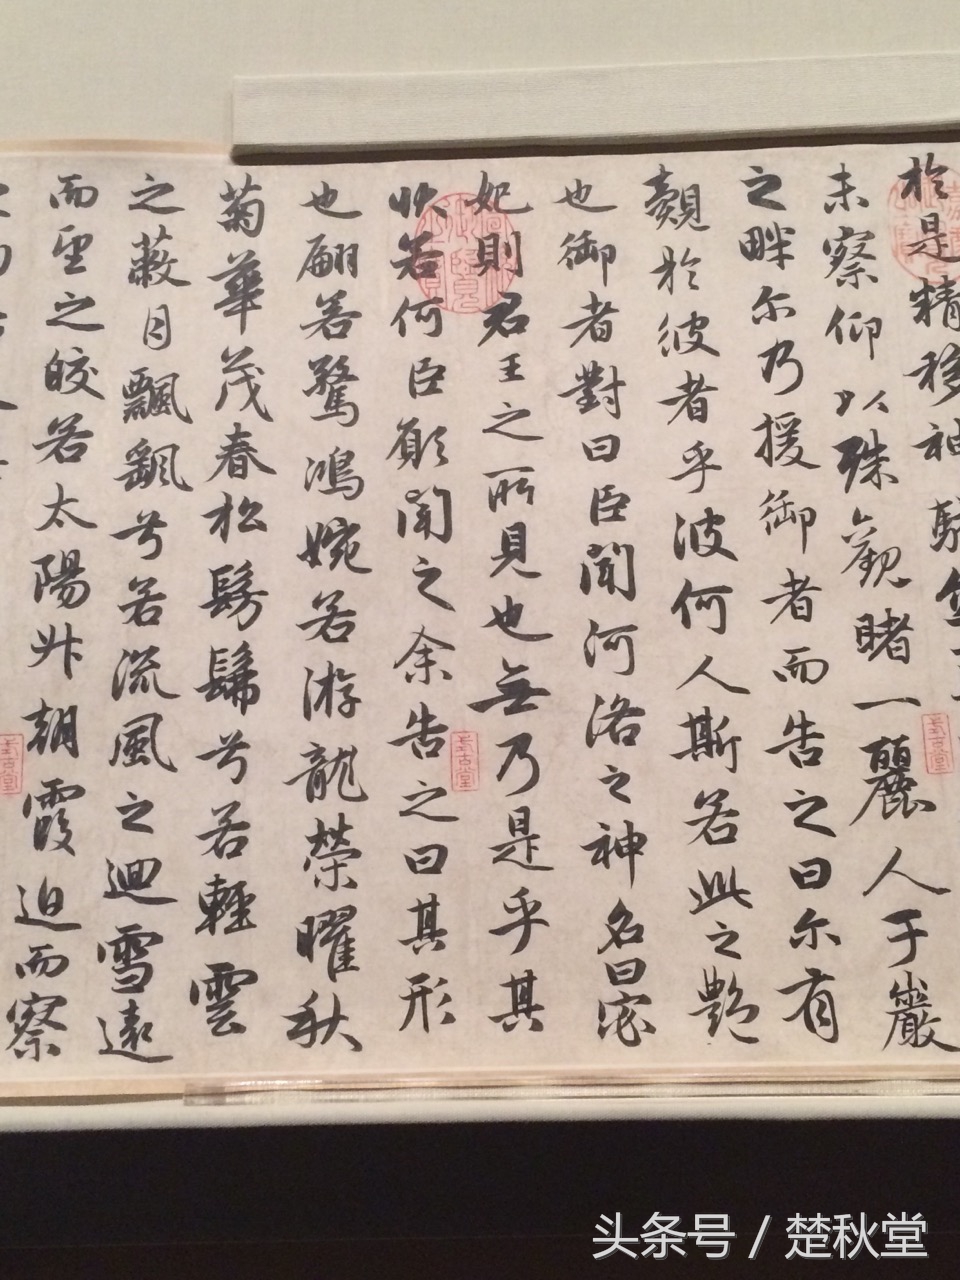 於是精移神駭忽
未察仰以殊觀睹一麗人于巖
之畔尔乃援御者而告之曰尔有
觀於彼者乎彼何人斯若此之艷
也御者對曰臣聞河洛之神名曰宓
妃則君王之所見也無乃是乎其
狀若何臣願聞之余告之曰其形
也翩若驚鴻婉若游龍榮曜秋
菊華茂春松髣髴兮若輕雲
之蔽月飄飖兮若流風之迴雪遠
而望之皎若太陽升朝霞迫而察
頭条号 / 楚秋堂